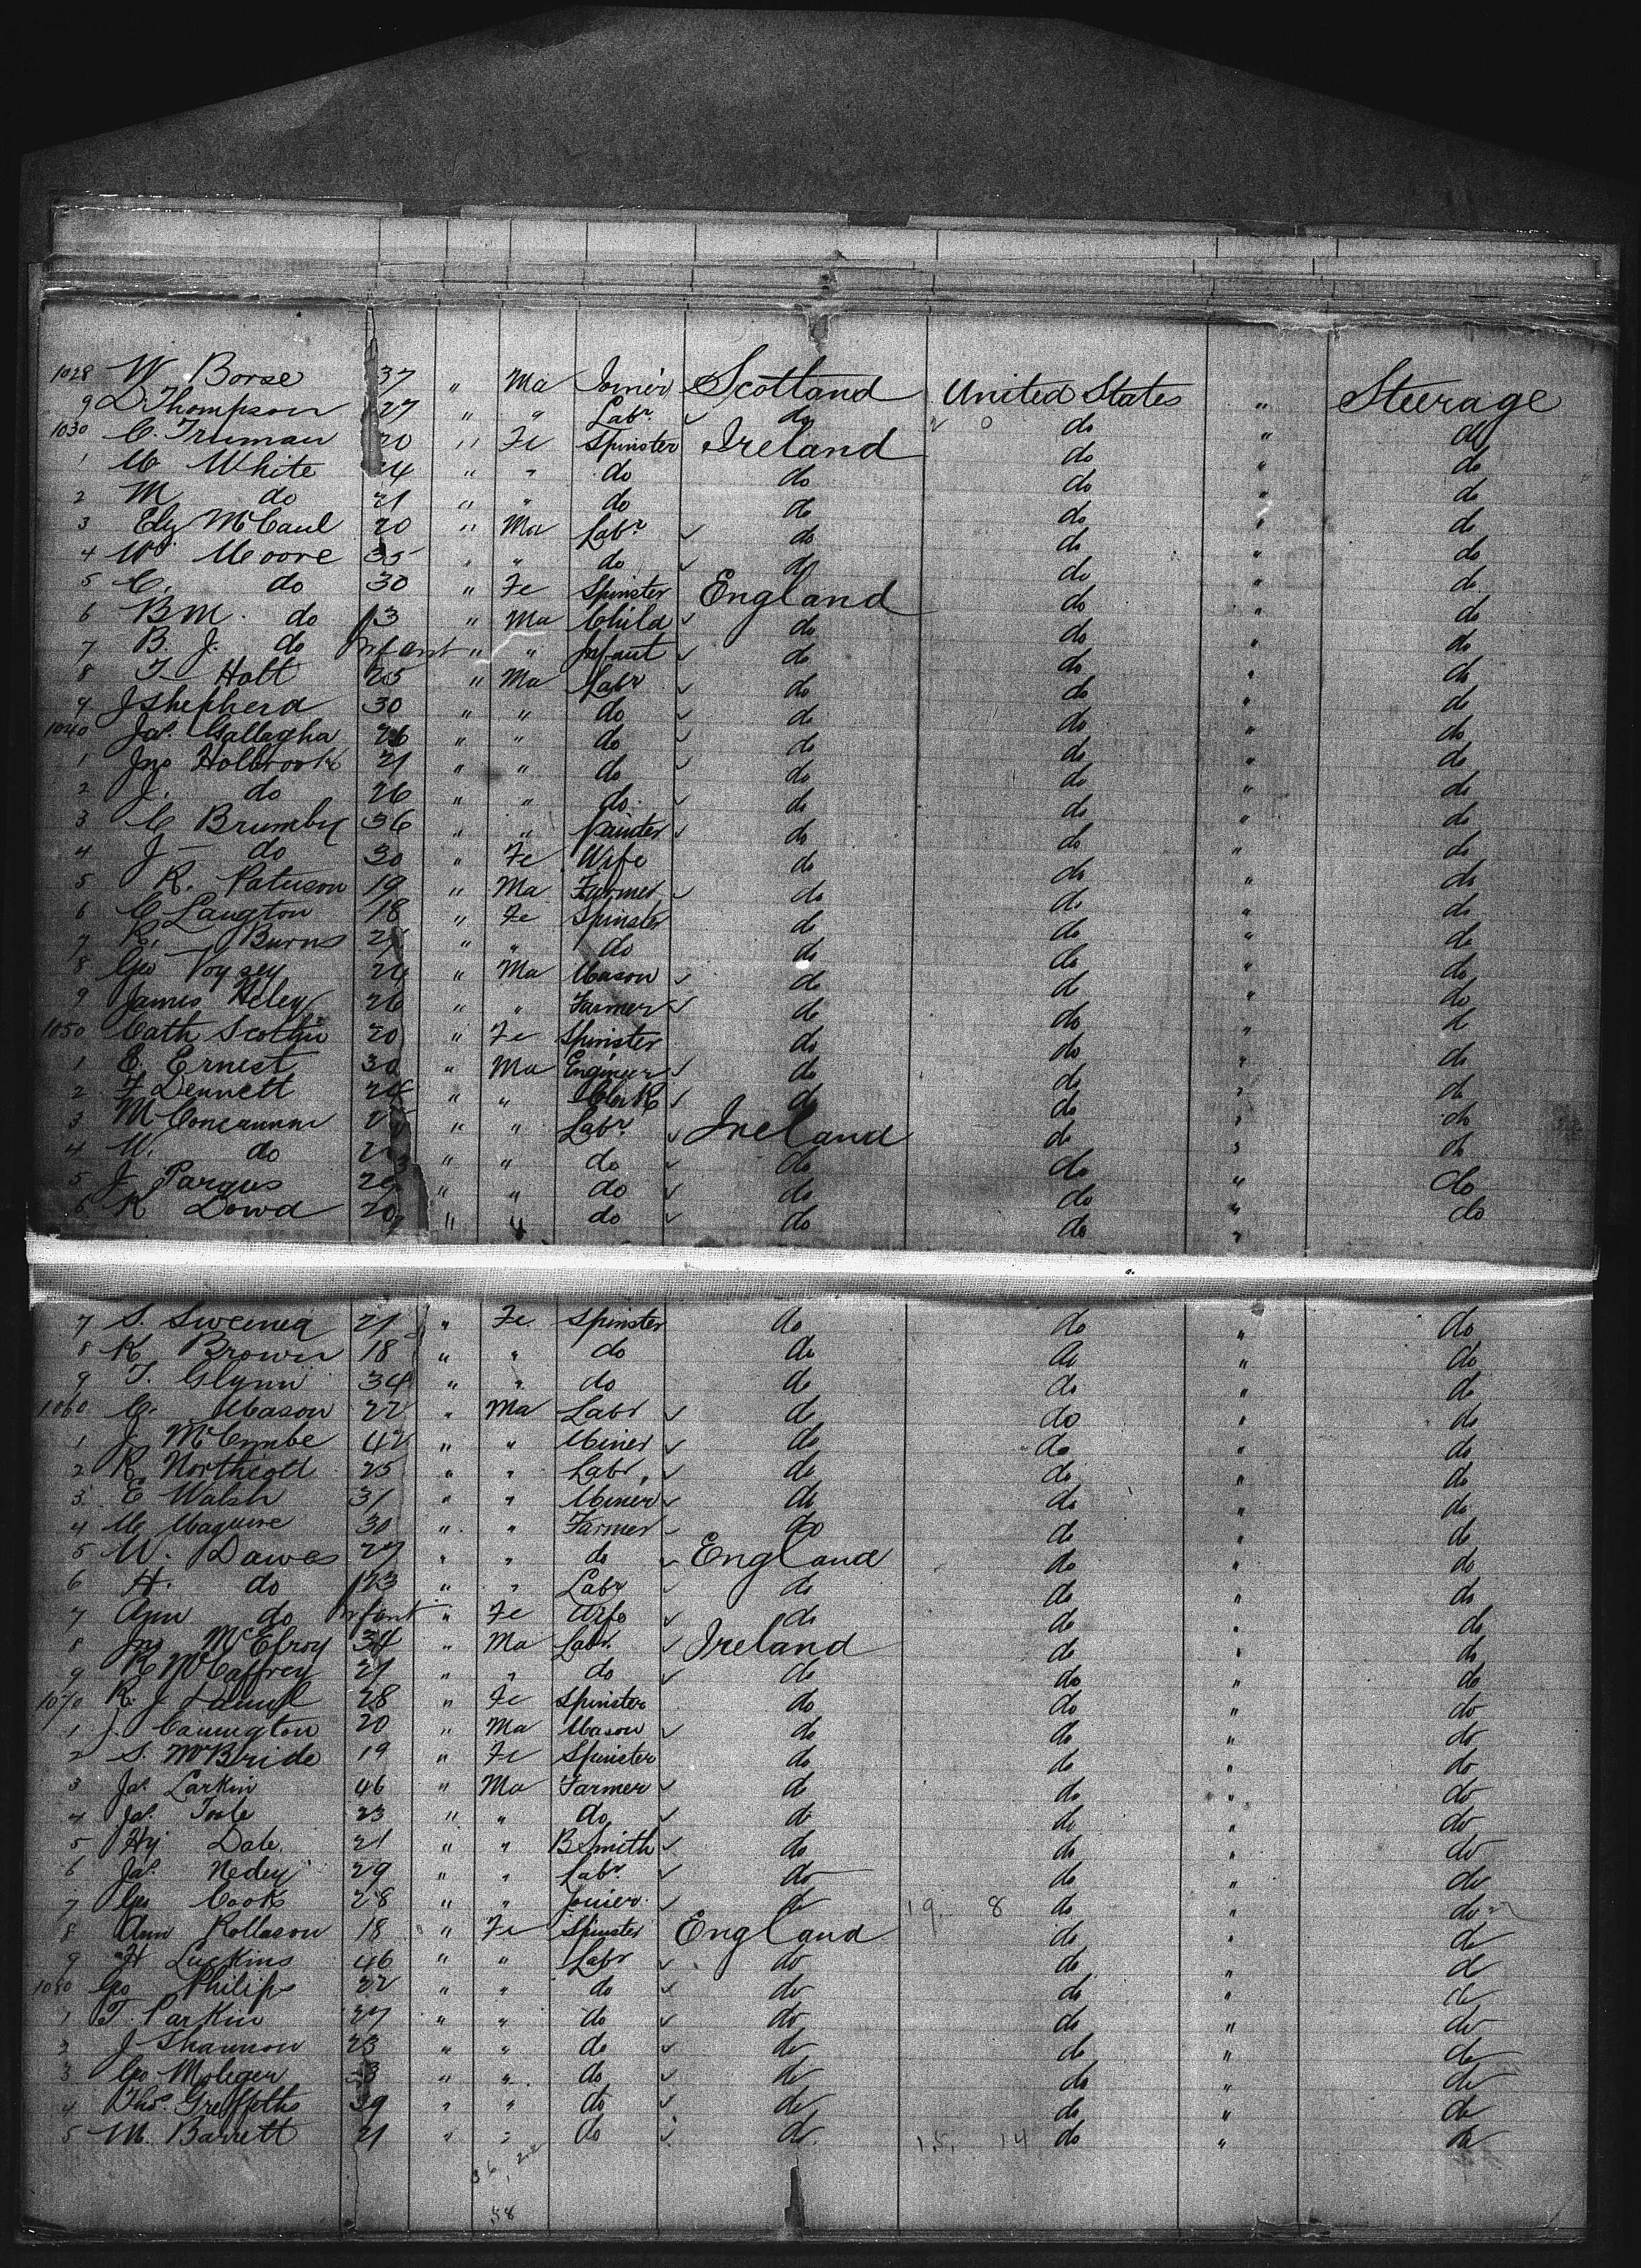 1028 W Borse 37 " Ma Joiner Scotland United States " Steerage
9 D. Thompson 27 " " Labr do do " do
1030 C. Truman 20 " Fe Spinster Ireland do " do
1 M White 24 " " do do do " do
2 M do 21 " " do do do " do
3 Edy McCaul 20 " Ma Labr do do " do
4 Wm Moore 35 " " do do do " do
5 C. do 30 " Fe Spinster England do " do
6 B M. do 13 " Ma Child do do " do
7 B. J. do Infant " " Infant do do " do
8 T Holt 25 " Ma Labr do do " do
9 J Shepherd 30 " " do do do " do
1040 Jas. Gallagha 26 " " do do do " do
1 Jno Holbrook 21 " " do do do " do
2 J. do 26 " " do do do " do
3 C Brumby 36 " " Painter do do " do
4 J do 30 " Fe Wife do do " do
5 R. Paterson 19 " Ma Farmer do do " do
6 C Langton 18 " Fe Spinster do do " do
7 R. Burns " " do do do " do
8 Geo Voysey 24 " Ma Mason do do " do
9 James Heley 26 " " Farmer do do " do
1050 Cath 20 " Fe Spinster do do " do
1 E. Ernest 30 " Ma Engineer do do " do
2 F Dennett 24 " " Clerk do do " do
3 M Concannon " " Labr Ireland do " do
4 W. do " " do do do " do
5 J Pargus " " do do do " do
6 K Dowd 20 " " do do do " do
7 S. Sweeney 21 " Fe. Spinster do do " do
8 K Brown 18 " " do do do " do
9 T. Glynn 34 " " do do do " do
1060 C. Mason 22 " Ma Labr do do " do
1 J McCombe 42 " " Miner do do " do
2 R Northcott 25 " " Labr. do do " do
3 E Walsh 31 " " Miner do do " do
4 M Maguire 30 " " Farmer do do " do
5 W. Dawes 27 " " do England do " do
6 H. do 23 " " Labr do do " do
7 Ann do Infant " Fe do do " do
8 Jno McElroy 34 " Ma Labr. Ireland do " do
9 R McCaffrey 21 " " do do do " do
1070 R. J 28 " Fe Spinster do do " do
1 J. Cannington 20 " Ma Mason do do " do
2 S. McBride 19 " Fe Spinster do do " do
3 Jas Larkin 46 " Ma Farmer do do " do
4 Jas. Toole 23 " " do do do " do
5 Hy Dale 21 " " B Smith do do " do
6 Jas. 29 " " Labr. do do " do
7 Geo Cook 28 " " Joiner. do 19. 8 do " do
8 Ann Rollason 18 " Fe Spinster England do " do
9 H Luckins 46 " " Labr do do " do
1080 Geo Philips 22 " " do do do " do
1 T. Parkin 27 " " do do do " do
2 J Shannon 23 " " do do do " do
3 Geo " " do do do " do
4 Thos. Griffeths 39 " " do do do " do
5 M. Barrett 21 " " do do 15. 14 do " do